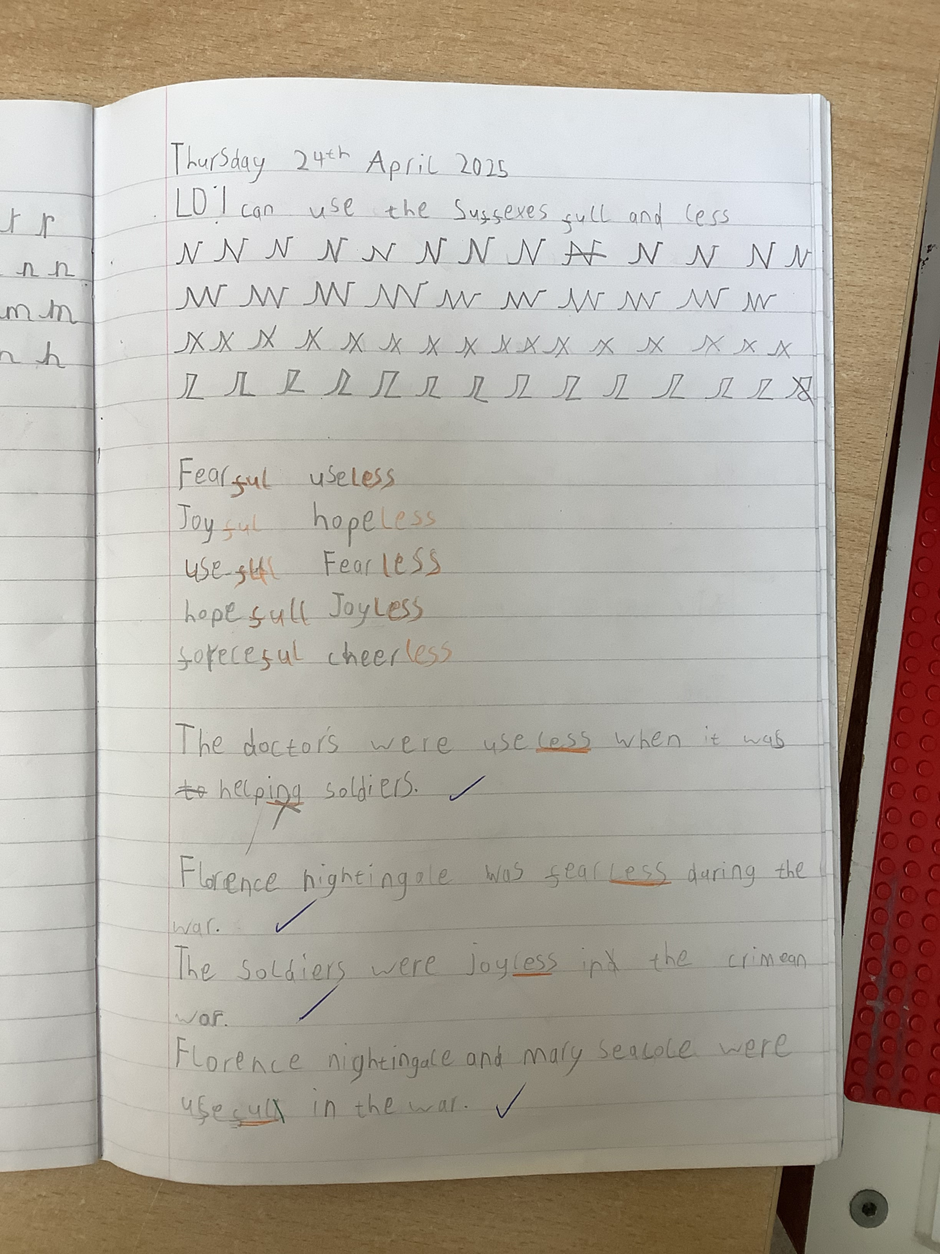 r r
n n
m m
n h
Thursday 24th April 2025
LO: I can use the Suffexes full and less
N N N N N N N N N N N N N
Fearful useless
Joyful hopeless
useful Fearless
hopefull Joyless
foreceful cheerless
The doctors were useless when it was
to helping soldiers.
Florence nightingale was fearless during the
war.
The soldiers were joyless in the crimean
war.
Florence nightingale and mary seacole were
usefull in the war.